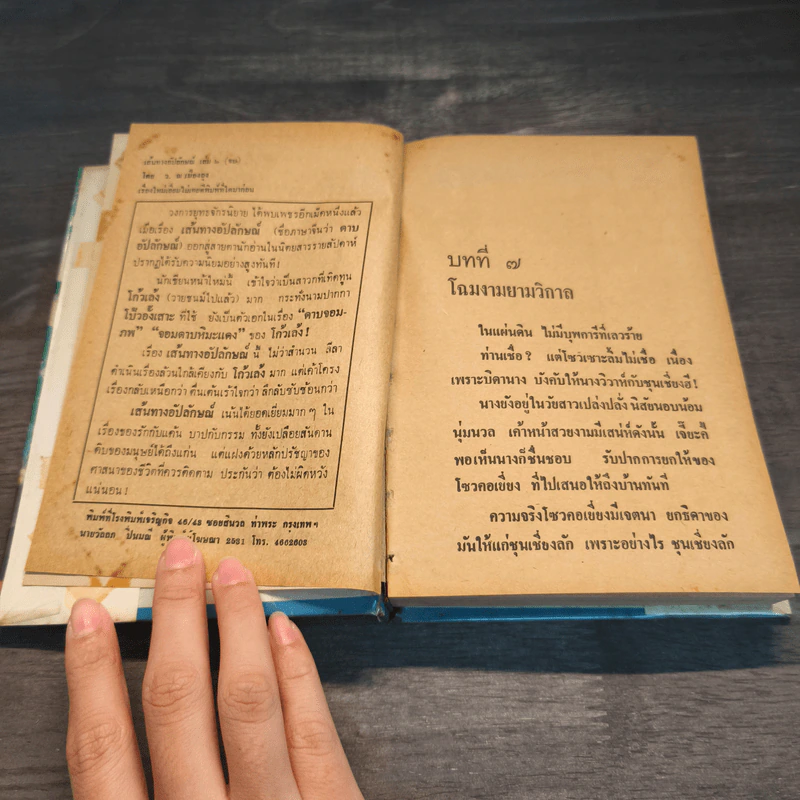 เส้นทางอัปลักษณ์ เล่ม ๒ (จบ)
โดย ว. ณ เมืองลุง
เรื่องใหม่เอี่ยมไม่เคยตีพิมพ์ที่ไหนมาก่อน
วงการยุทธจักรนิยาย ได้พบเพชรอีกเม็ดหนึ่งแล้ว
เมื่อเรื่อง เส้นทางอัปลักษณ์ (ชื่อภาษาจีนว่า ดาบ
อัปลักษณ์) ออกสู่สายตานักอ่านในนิตยสารรายสัปดาห์
ปรากฏได้รับความนิยมอย่างสูงทันที!
นักเขียนหน้าใหม่นี้ เข้าใจว่าเป็นสาวกที่เทิดทูน
โก้วเล้ง (วายชนม์ไปแล้ว) มาก กระทั่งนามปากกา
โป้วอั้งเสาะ ที่ใช้ ยังเป็นตัวเอกในเรื่อง “ดาบจอม-
ภพ” “จอมดาบหิมะแดง” ของ โก้วเล้ง!
เรื่อง เส้นทางอัปลักษณ์ นี้ ไม่ว่าสำนวน ลีลา
ดำเนินเรื่องล้วนใกล้เคียงกับ โก้วเล้ง มาก แต่เค้าโครง
เรื่องกลับเหนือกว่า ตื่นเต้นเร้าใจกว่า ลึกลับซับซ้อนกว่า
เส้นทางอัปลักษณ์ เน้นได้ยอดเยี่ยมมากๆ ใน
เรื่องของรักกับแค้น บาปกับกรรม ทั้งยังเปลือยสันดาน
ดิบของมนุษย์ได้ถึงแก่น แต่แฝงด้วยหลักปรัชญาของ
ศาสนาของชีวิตที่ควรติดตาม ประกันว่า ต้องไม่ผิดหวัง
แน่นอน!
พิมพ์ที่โรงพิมพ์เจริญกิจ 46/43 ซอยสีนวล ท่าพระ กรุงเทพฯ
นายวัลลภ ปิ่นมณี ผู้พิมพ์ผู้โฆษณา 2531 โทร. 4602603
บทที่ ๗
โฉมงามยามวิกาล
ในแผ่นดิน ไม่มีบุพการีที่เลวร้าย
ท่านเชื่อ? แต่โซวเซาะลิ้มไม่เชื่อ เนื่อง
เพราะบิดานาง บังคับให้นางวิวาห์กับซุนเชี่ยงฮี!
นางยังอยู่ในวัยสาวเปล่งปลั่ง นิสัยนอบน้อม
นุ่มนวล เค้าหน้าสวยงามมีเสน่ห์ดังนั้น เจี๊ยะคี้
พอเห็นนางก็ชื่นชอบ รับปากการยกให้ของ
โซวคอเซี่ยง ที่ไปเสนอให้ถึงบ้านทันที
ความจริงโซวคอเซี่ยงมีเจตนา ยกธิดาของ
มันให้แก่ซุนเซี่ยงลัก เพราะอย่างไร ซุนเซี่ยงลัก